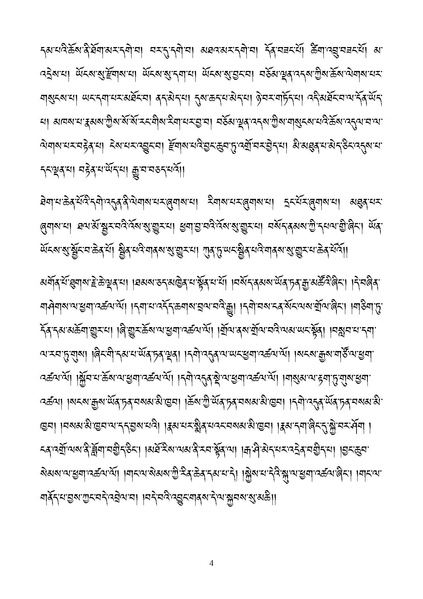 དམ་པའི་ཆོས་ནི་ཐོག་མར་དགེ་བ། བར་དུ་དགེ་བ། མཐའ་མར་དགེ་བ། དོན་བཟང་པོ། ཚིག་འབྲུ་བཟང་པོ། མ་
འདྲེས་པ། ཡོངས་སུ་རྫོགས་པ། ཡོངས་སུ་དག་པ། ཡོངས་སུ་བྱང་བ། བཅོམ་ལྡན་འདས་ཀྱིས་ཆོས་ལེགས་པར་
གསུངས་པ། ཡང་དག་པར་མཐོང་བ། ནད་མེད་པ། དུས་ཆད་པ་མེད་པ། ཉེ་བར་གཏོད་པ། འདི་མཐོང་བ་ལ་དོན་ཡོད་
པ། མཁས་པ་རྣམས་ཀྱིས་སོ་སོ་རང་གིས་རིག་པར་བྱ་བ། བཅོམ་ལྡན་འདས་ཀྱིས་གསུངས་པའི་ཆོས་འདུལ་བ་ལ་
ལེགས་པར་བརྟེན་པ། ངེས་པར་འབྱུང་བ། རྫོགས་པའི་བྱང་ཆུབ་ཏུ་འགྲོ་བར་བྱེད་པ། མི་མཐུན་པ་མེད་ཅིང་འདུས་པ་
དང་ལྡན་པ། བརྟེན་པ་ཡོད་པ། རྒྱུ་བ་བཅད་པའོ།།
ཐེག་པ་ཆེན་པོའི་དགེ་འདུན་ནི་ལེགས་པར་ཞུགས་པ། རིགས་པར་ཞུགས་པ། དྲང་པོར་ཞུགས་པ། མཐུན་པར་
ཞུགས་པ། ཐལ་མོ་སྦྱར་བའི་འོས་སུ་གྱུར་པ། ཕྱག་བྱ་བའི་འོས་སུ་གྱུར་པ། བསོད་ནམས་ཀྱི་དཔལ་གྱི་ཞིང་། ཡོན་
ཡོངས་སུ་སྦྱོང་བ་ཆེན་པོ། སྦྱིན་པའི་གནས་སུ་གྱུར་པ། ཀུན་ཏུ་ཡང་སྦྱིན་པའི་གནས་སུ་གྱུར་པ་ཆེན་པོའོ།།
མགོན་པོ་ཐུགས་རྗེ་ཆེ་ལྡན་པ། །ཐམས་ཅད་མཁྱེན་པ་སྟོན་པ་པོ། །བསོད་ནམས་ཡོན་ཏན་རྒྱ་མཚོའི་ཞིང་། །དེ་བཞིན་
གཤེགས་ལ་ཕྱག་འཚལ་ལོ། །དག་པ་འདོད་ཆགས་བྲལ་བའི་རྒྱུ། །དགེ་བས་ངན་སོང་ལས་གྲོལ་ཞིང་། །གཅིག་ཏུ་
དོན་དམ་མཆོག་གྱུར་པ། །ཞི་གྱུར་ཆོས་ལ་ཕྱག་འཚལ་ལོ། །གྲོལ་ནས་གྲོལ་བའི་ལམ་ཡང་སྟོན། །བསླབ་པ་དག་
ལ་རབ་ཏུ་གུས། །ཞིང་གི་དམ་པ་ཡོན་ཏན་ལྡན། །དགེ་འདུན་ལ་ཡང་ཕྱག་འཚལ་ལོ། །སངས་རྒྱས་གཙོ་ལ་ཕྱག་
འཚལ་ལོ། །སྐྱོབ་པ་ཆོས་ལ་ཕྱག་འཚལ་ལོ། །དགེ་འདུན་སྡེ་ལ་ཕྱག་འཚལ་ལོ། །གསུམ་ལ་རྟག་ཏུ་གུས་ཕྱག་
འཚལ། །སངས་རྒྱས་ཡོན་ཏན་བསམ་མི་ཁྱབ། །ཆོས་ཀྱི་ཡོན་ཏན་བསམ་མི་ཁྱབ། །དགེ་འདུན་ཡོན་ཏན་བསམ་མི་
ཁྱབ། །བསམ་མི་ཁྱབ་ལ་དད་བྱས་པའི། །རྣམ་པར་སྨིན་པའང་བསམ་མི་ཁྱབ། །རྣམ་དག་ཞིང་དུ་སྐྱེ་བར་ཤོག །
ངན་འགྲོ་ལས་ནི་བློག་བགྱིད་ཅིང་། །མཐོ་རིས་ལམ་ནི་རབ་སྟོན་ལ། །རྒ་ཤི་མེད་པར་འདྲེན་བགྱིད་པ། །བྱང་ཆུབ་
སེམས་ལ་ཕྱག་འཚལ་ལོ། །གང་ལ་སེམས་ཀྱི་རིན་ཆེན་དམ་པ་དེ། །སྐྱེས་པ་དེའི་སྐུ་ལ་ཕྱག་འཚལ་ཞིང་། །གང་ལ་
གནོད་པ་བྱས་ཀྱང་བདེ་འབྲེལ་བ། །བདེ་བའི་འབྱུང་གནས་དེ་ལ་སྐྱབས་སུ་མཆི།།
4